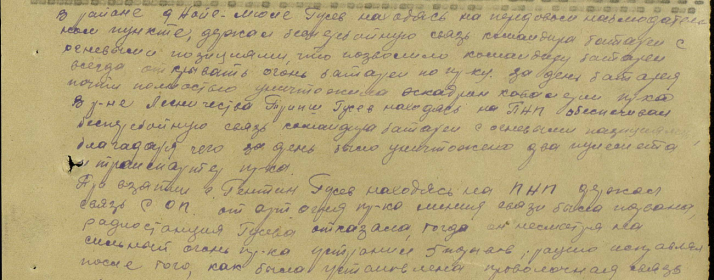 В районе д. Ной-Мюле Гусев находясь на передовом наблюдатель
ном пункте, держал бесперебойную связь командира батареи с
огневыми позициями, что позволило командиру батареи
всегда открывать огонь батареи по пр-ку. За день батарея
почти полностью уничтожила эскадрон кавалерии пр-ка
В р-не Лесничества Гусев находясь на ПНП обеспечивал
бесперебойную связь командира батареи с огневыми позициями,
благодаря чего за день было уничтожено два пулемета
и транспортер пр-ка.
При взятии г. Гусев находясь на ПНП держал
связь с ОП. от арт огня пр-ка линия связи была порвана,
радиостанция Гусева отказала, тогда он несмотря на
сильный огонь пр-ка устранил порывов, рацию исправил
после того, как была установлена проволочная связь